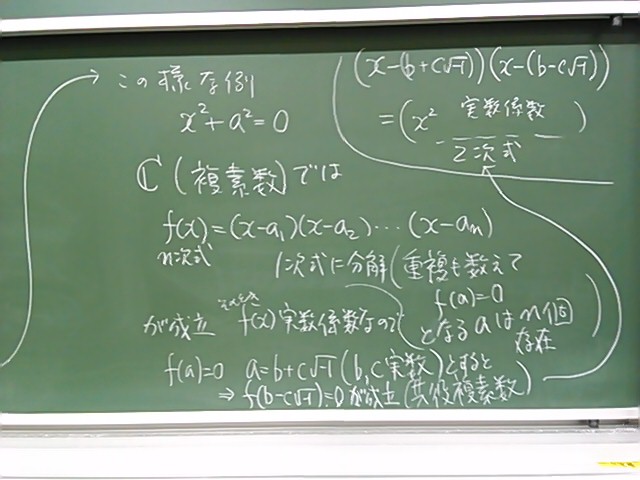 この様な例
x²+a²=0
ℂ(複素数)では
f(x)=(x-a₁)(x-a₂)⋯(x-aₙ)
n次式
1次式に分解(重複も数えて
f(a)=0
となるaはn個
存在)
が成立 そのとき f(x)実数係数なので
f(a)=0 a=b+c√-1(b,c実数)とすると
⇒f(b-c√-1)=0が成立(共役複素数)
(x-(b+c√-1))(x-(b-c√-1))
=(x² 実数係数 )
2次式